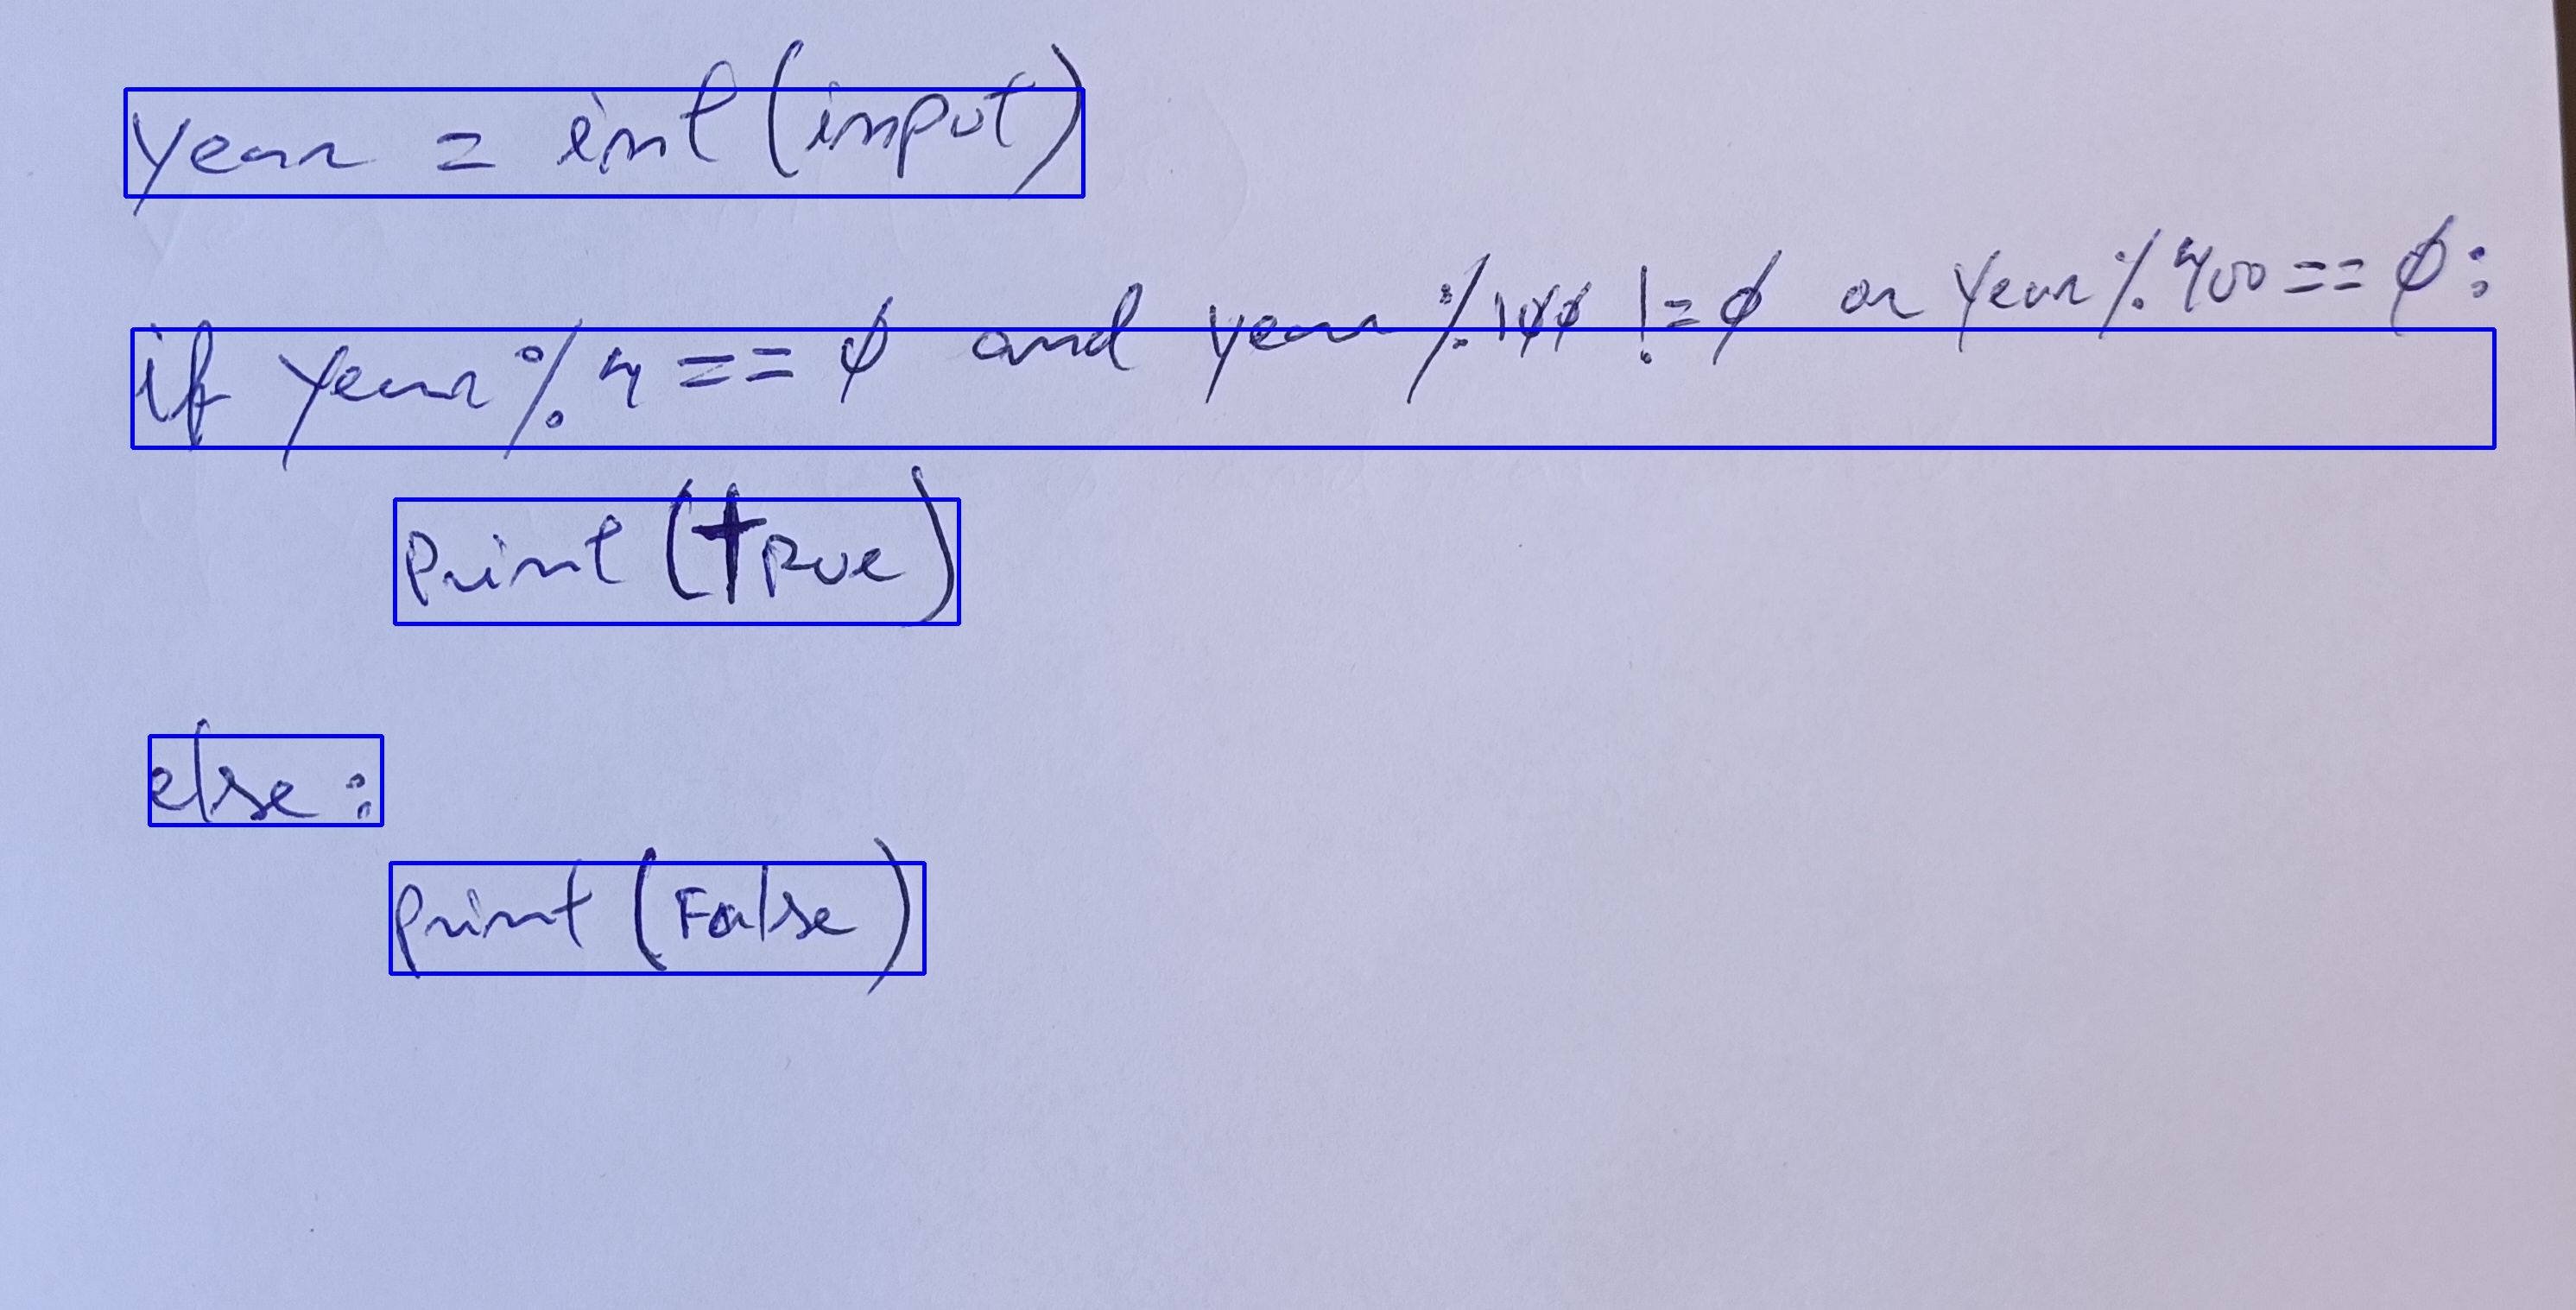 year = int(input)
if year % 4 == 0 and year % 100 != 0 or year % 400 == 0:
print(true)
else:
print(False)